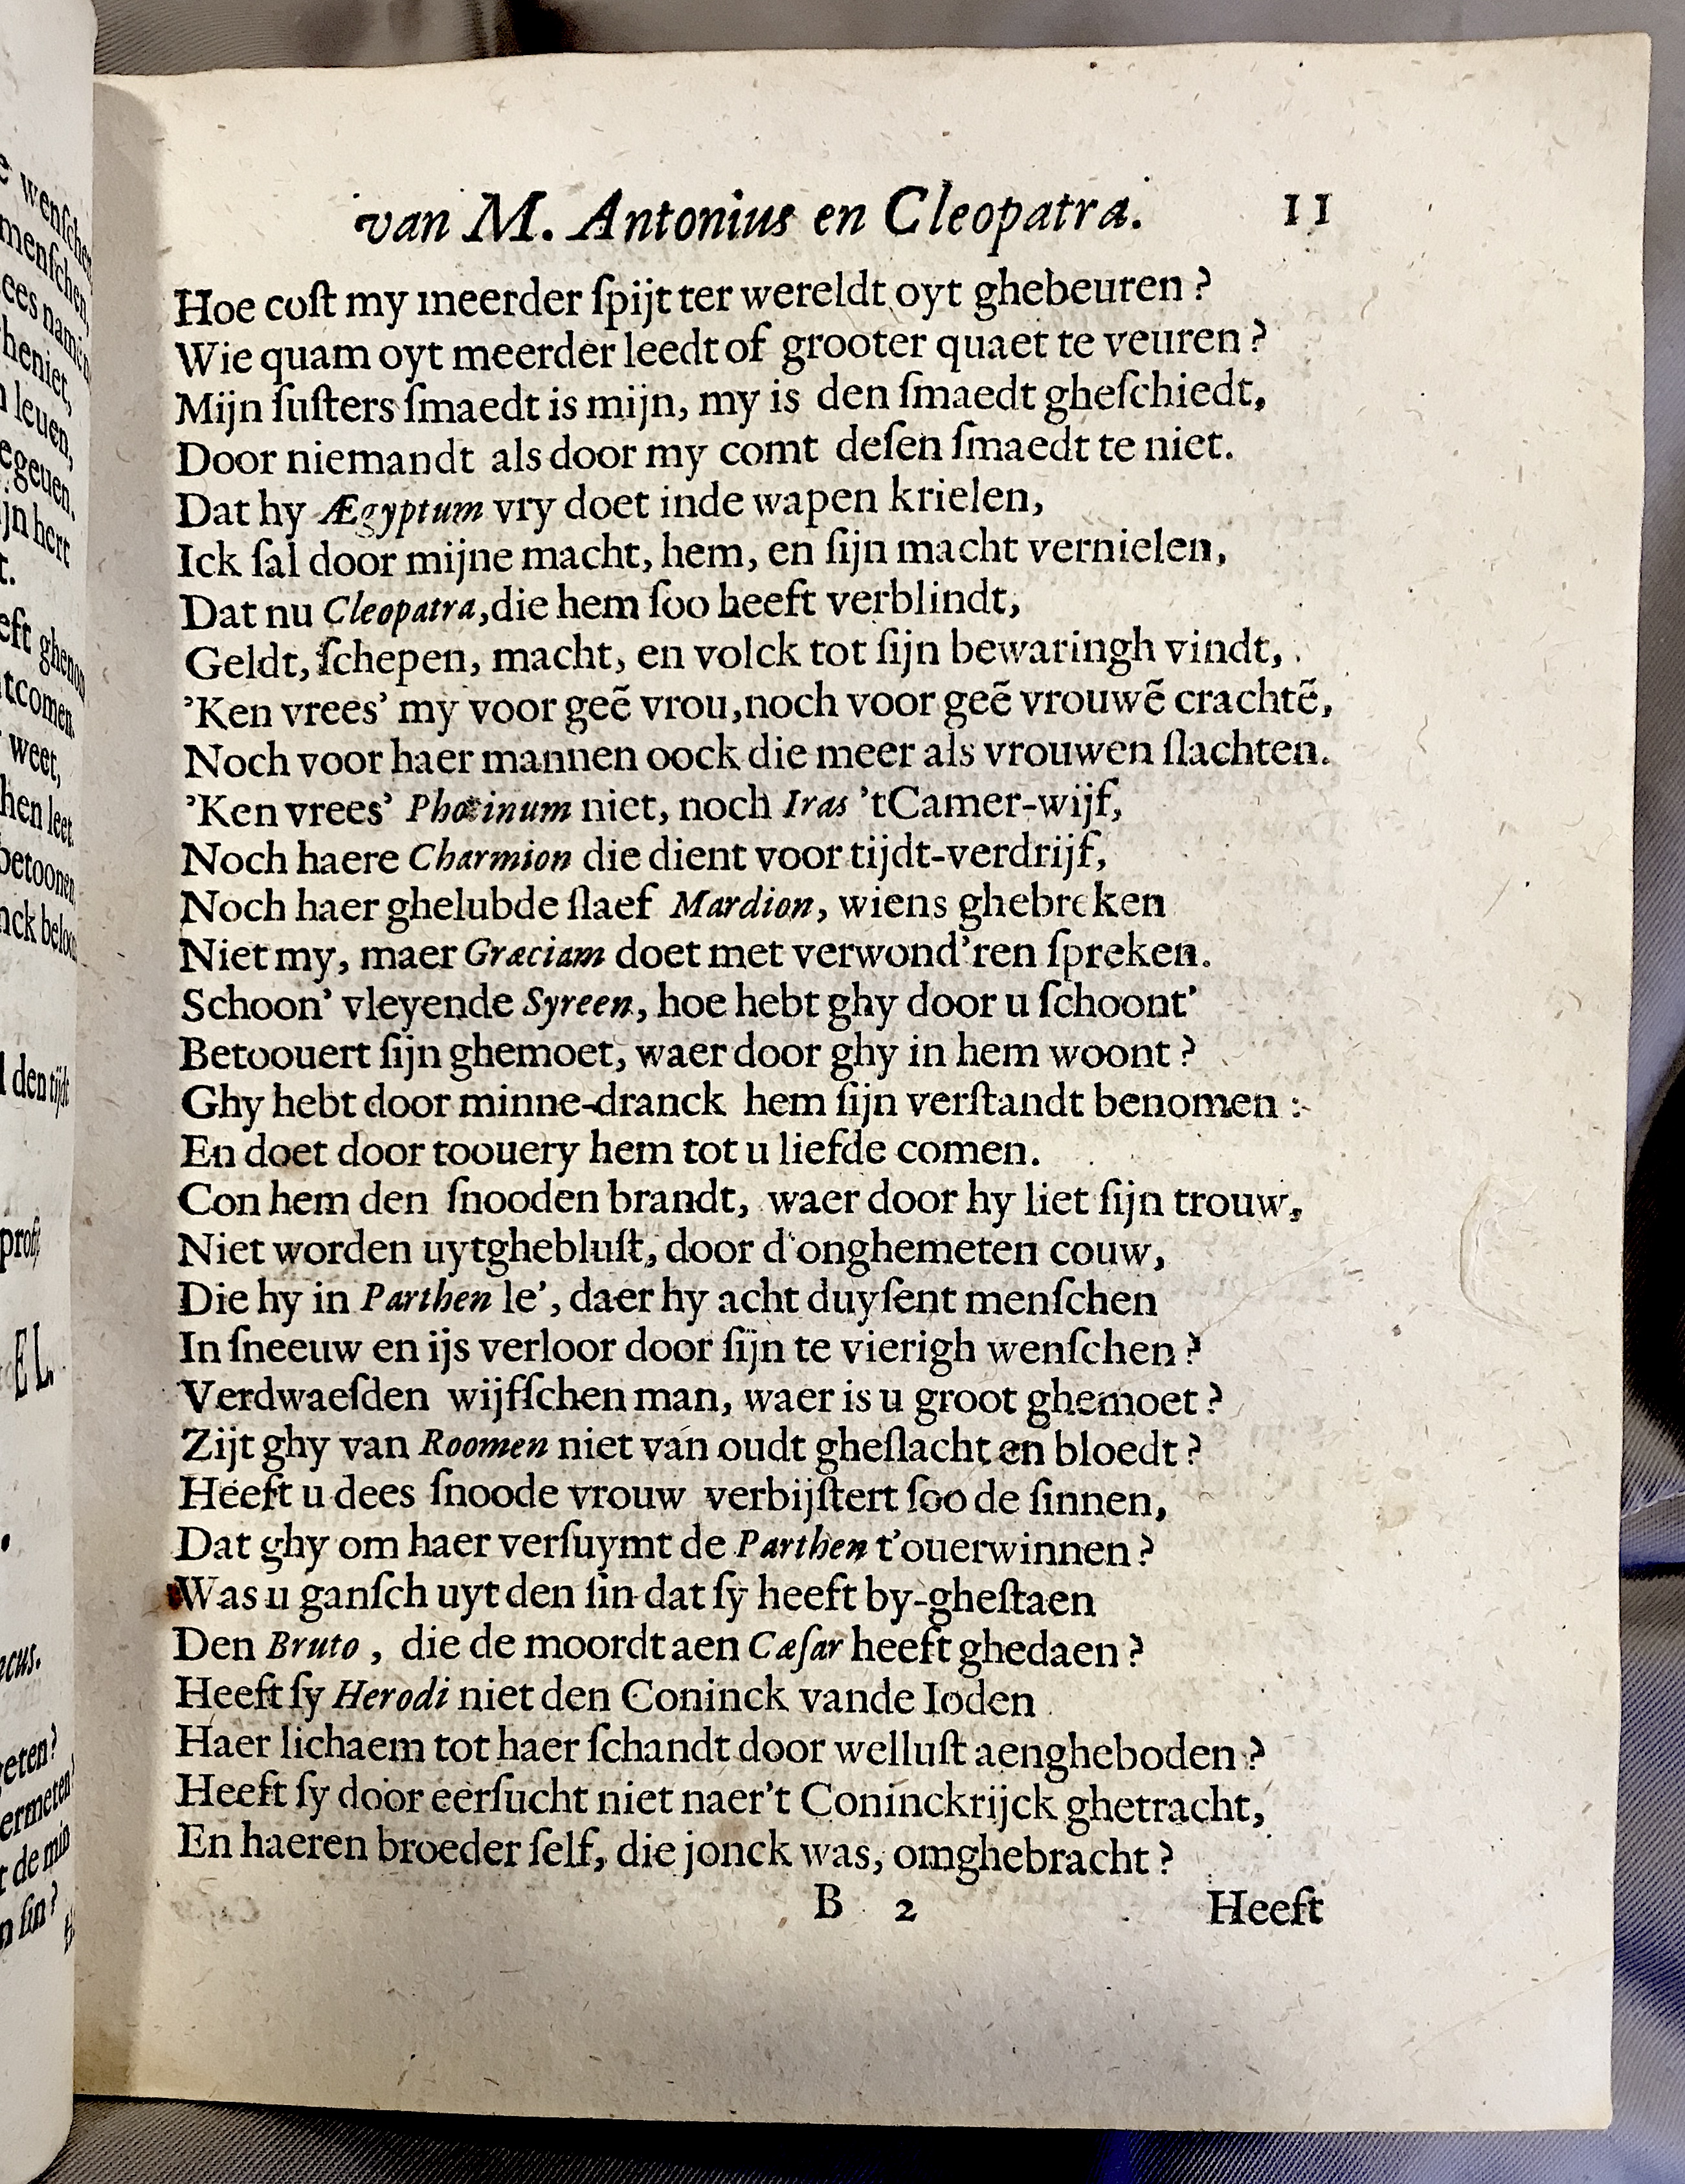 van M. Antonius en Cleopatra. 11
Hoe coſt my meerder ſpijt ter wereldt oyt ghebeuren?
Wie quam oyt meerder leedt of grooter quaet te veuren?
Mijn ſuſters ſmaedt is mijn, my is den ſmaedt gheſchiedt,
Door niemandt als door my comt deſen ſmaedt te niet.
Dat hy Ægyptum vry doet inde wapen krielen,
Ick ſal door mijne macht, hem, en ſijn macht vernielen,
Dat nu Cleopatra, die hem ſoo heeft verblindt,
Geldt, ſchepen, macht, en volck tot ſijn bewaringh vindt,
'Ken vrees' my voor geẽ vrou, noch voor geẽ vrouwẽ crachtẽ,
Noch voor haer mannen oock die meer als vrouwen ſlachten.
'Ken vrees' Photinum niet, noch Iras 'tCamer-wijf,
Noch haere Charmion die dient voor tijdt-verdrijf,
Noch haer ghelubde ſlaef Mardion, wiens ghebreken
Niet my, maer Græciam doet met verwond'ren ſpreken.
Schoon' vleyende Syreen, hoe hebt ghy door u ſchoont'
Betoouert ſijn ghemoet, waer door ghy in hem woont?
Ghy hebt door minne-dranck hem ſijn verſtandt benomen:
En doet door toouery hem tot u liefde comen.
Con hem den ſnooden brandt, waer door hy liet ſijn trouw,
Niet worden uytghebluſt, door d'onghemeten couw,
Die hy in Parthen le', daer hy acht duyſent menſchen
In ſneeuw en ijs verloor door ſijn te vierigh wenſchen?
Verdwaeſden wijfſchen man, waer is u groot ghemoet?
Zijt ghy van Roomen niet van oudt gheſlacht en bloedt?
Heeft u dees ſnoode vrouw verbijſtert ſoo de ſinnen,
Dat ghy om haer verſuymt de Parthen t'ouerwinnen?
Was u ganſch uyt den ſin dat ſy heeft by-gheſtaen
Den Bruto, die de moordt aen Cæſar heeft ghedaen?
Heeft ſy Herodi niet den Coninck vande Ioden
Haer lichaem tot haer ſchandt door welluſt aengheboden?
Heeft ſy door eerſucht niet naer't Coninckrijck ghetracht,
En haeren broeder ſelf, die jonck was, omghebracht?
B 2 Heeft